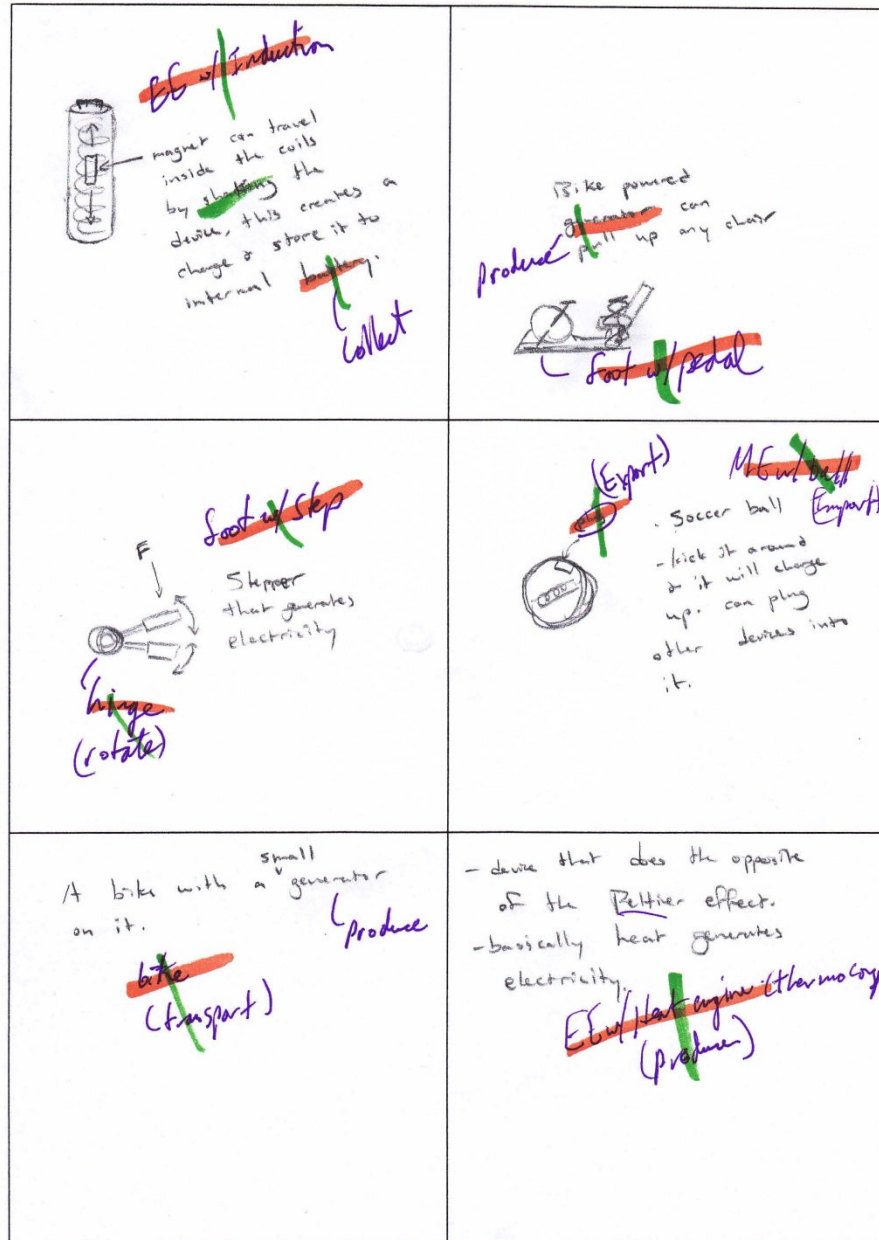 EE w/ Induction
magnet can travel
inside the coils
by shaking the
device, this creates a
charge & store it to
internal battery.
Collect
Bike powered
generator can
pull up any chair
Produce
foot w/ pedal
foot w/ step
F
Stepper
that generates
electricity
hinge
(rotate)
(Export)
plug
ME w/ ball
(Import)
. Soccer ball
- kick it around
& it will charge
up. can plug
other devices into
it.
small
A bike with a generator
on it.
Produce
bike
(transport)
- device that does the opposite
of the Peltier effect.
- basically heat generates
electricity.
EE w/ Heat engine (thermocoup
(produce)